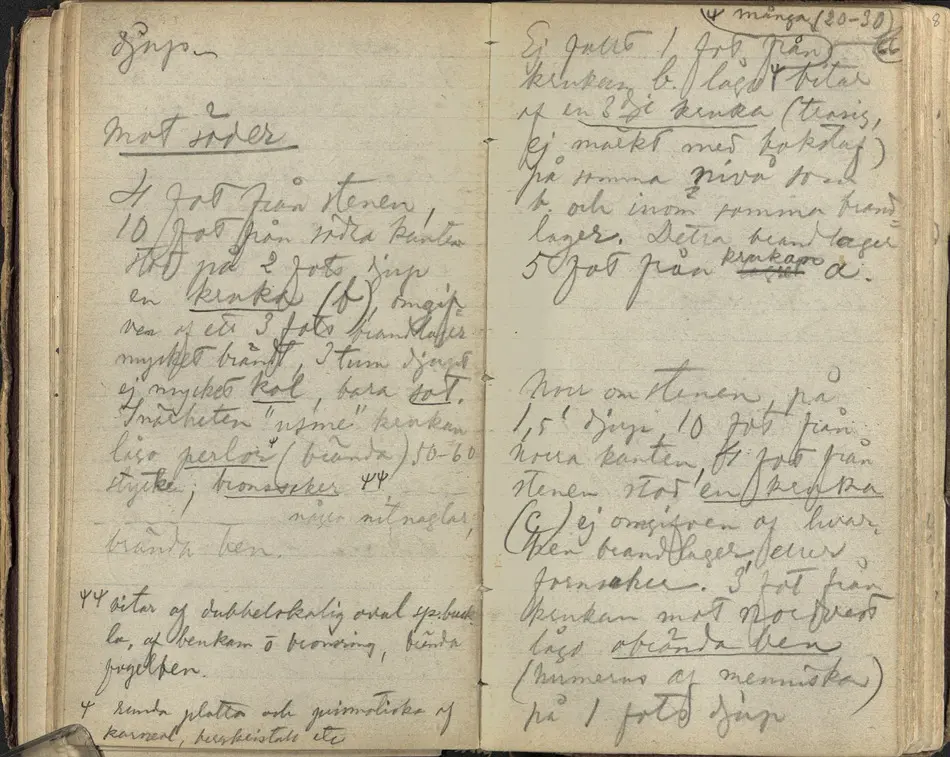 djup.
Mot söder
4 fot från stenen,
10 fot från södra kanten
stod på 2 fots djup
en kruka (b), omgif-
ven af ett 3 fots brandlager
mycket brändt, 3 tum djupt
ej mycket kol, bara sot.
I närheten krukan
lågo perlor Ψ (brända) 50-60
stycke; bronssaker ΨΨ,
några nitnaglar,
brända ben.
ΨΨ bitar af dubbelskalig oval sp:buck-
la, af benkam o bronsring, brända
fogelben.
Ψ runda platta och prismatiska af
karneol, bergkristall etc
Ψ många (20-30)
66
8
Ej fullt 1 fot från
krukan b. lågo Ψ bitar
af en 3dje kruka (trasig,
ej märkt med bokstaf)
på samma nivå som
b. och inom samma brand-
lager. Detta brandlager
5 fot från krukan a.
Norr om stenen, på
1,5' djup, 10 fot från
norra kanten, 4 fot från
stenen stod en kruka
(c) ej omgifven af hvar-
ken brandlager eller
fornsaker. 3 fot från
krukan mot nordvest
lågo obrända ben
(humerus af menniska)
på 1 fots djup